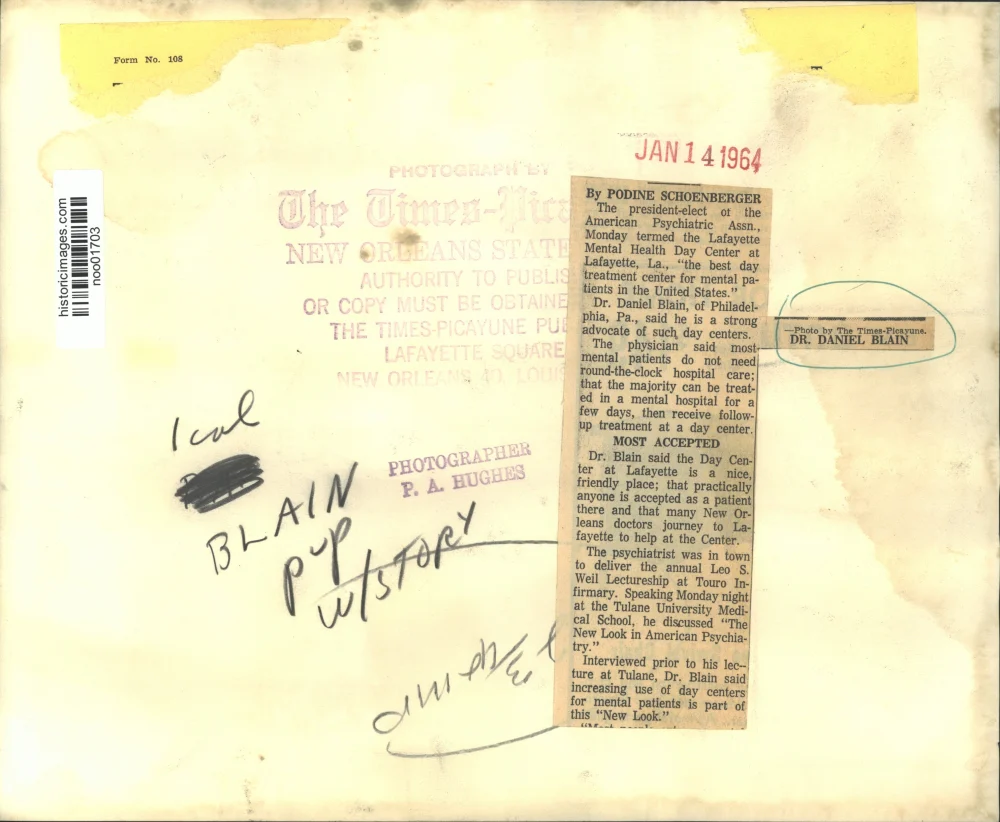 Form No. 108
historicimages.com
noo01703
JAN 14 1964
PHOTOGRAPH BY
The Times-Pica
NEW ORLEANS STATE
AUTHORITY TO PUBLIS
OR COPY MUST BE OBTAINE
THE TIMES-PICAYUNE PU
LAFAYETTE SQUARE
NEW ORLEANS 40, LOUIS
By PODINE SCHOENBERGER
The president-elect of the
American Psychiatric Assn.,
Monday termed the Lafayette
Mental Health Day Center at
Lafayette, La., "the best day
treatment center for mental pa-
tients in the United States."
Dr. Daniel Blain, of Philadel-
phia, Pa., said he is a strong
advocate of such day centers.
The physician said most
mental patients do not need
round-the-clock hospital care;
that the majority can be treat-
ed in a mental hospital for a
few days, then receive follow-
up treatment at a day center.
MOST ACCEPTED
Dr. Blain said the Day Cen-
ter at Lafayette is a nice,
friendly place; that practically
anyone is accepted as a patient
there and that many New Or-
leans doctors journey to La-
fayette to help at the Center.
The psychiatrist was in town
to deliver the annual Leo S.
Weil Lectureship at Touro In-
firmary. Speaking Monday night
at the Tulane University Medi-
cal School, he discussed "The
New Look in American Psychia-
try."
Interviewed prior to his lec-
ture at Tulane, Dr. Blain said
increasing use of day centers
for mental patients is part of
this "New Look."
—Photo by The Times-Picayune.
DR. DANIEL BLAIN
1 col
BLAIN
pup
w/STORY
PHOTOGRAPHER
P. A. HUGHES